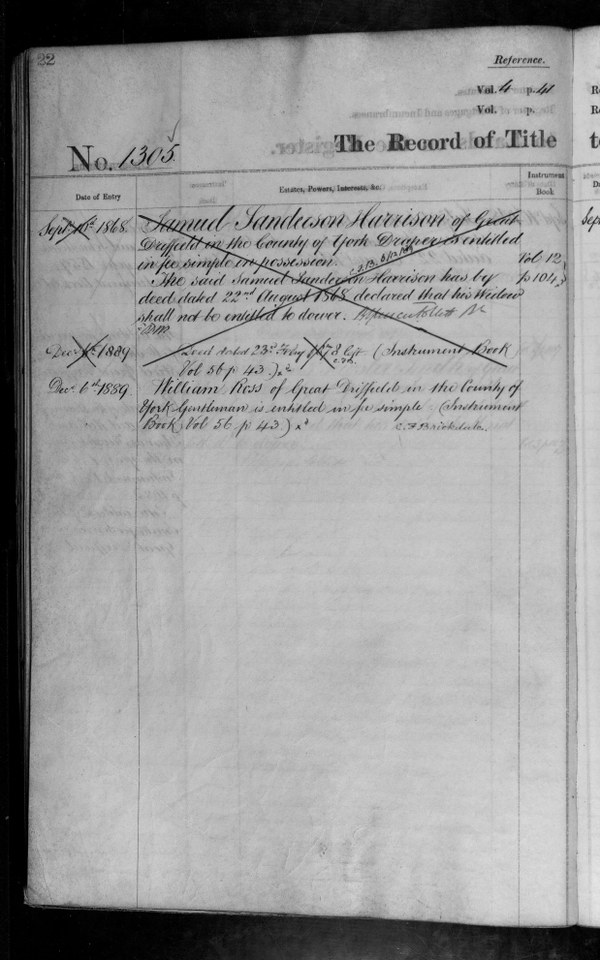 22
Reference.
Vol. 4 p. 41
Vol. p.
The Record of Title
No. 1305
Date of Entry
Estates, Powers, Interests, &c.
Instrument
Book
Sept. 1868.
Samuel Sanderson Harrison of Great
Driffield in the County of York Draper is entitled
in fee simple in possession.
Vol 12
The said Samuel Sanderson Harrison has by
p 104
deed dated 22nd August 1868 declared that his Widow
shall not be entitled to dower.
Dec. 1889
Deed dated 23rd (Instrument Book
Vol 56 p 43.)
Dec. 6th 1889
William Ross of Great Driffield in the County of
York Gentleman is entitled in fee simple (Instrument
Book Vol 56 p 43.)